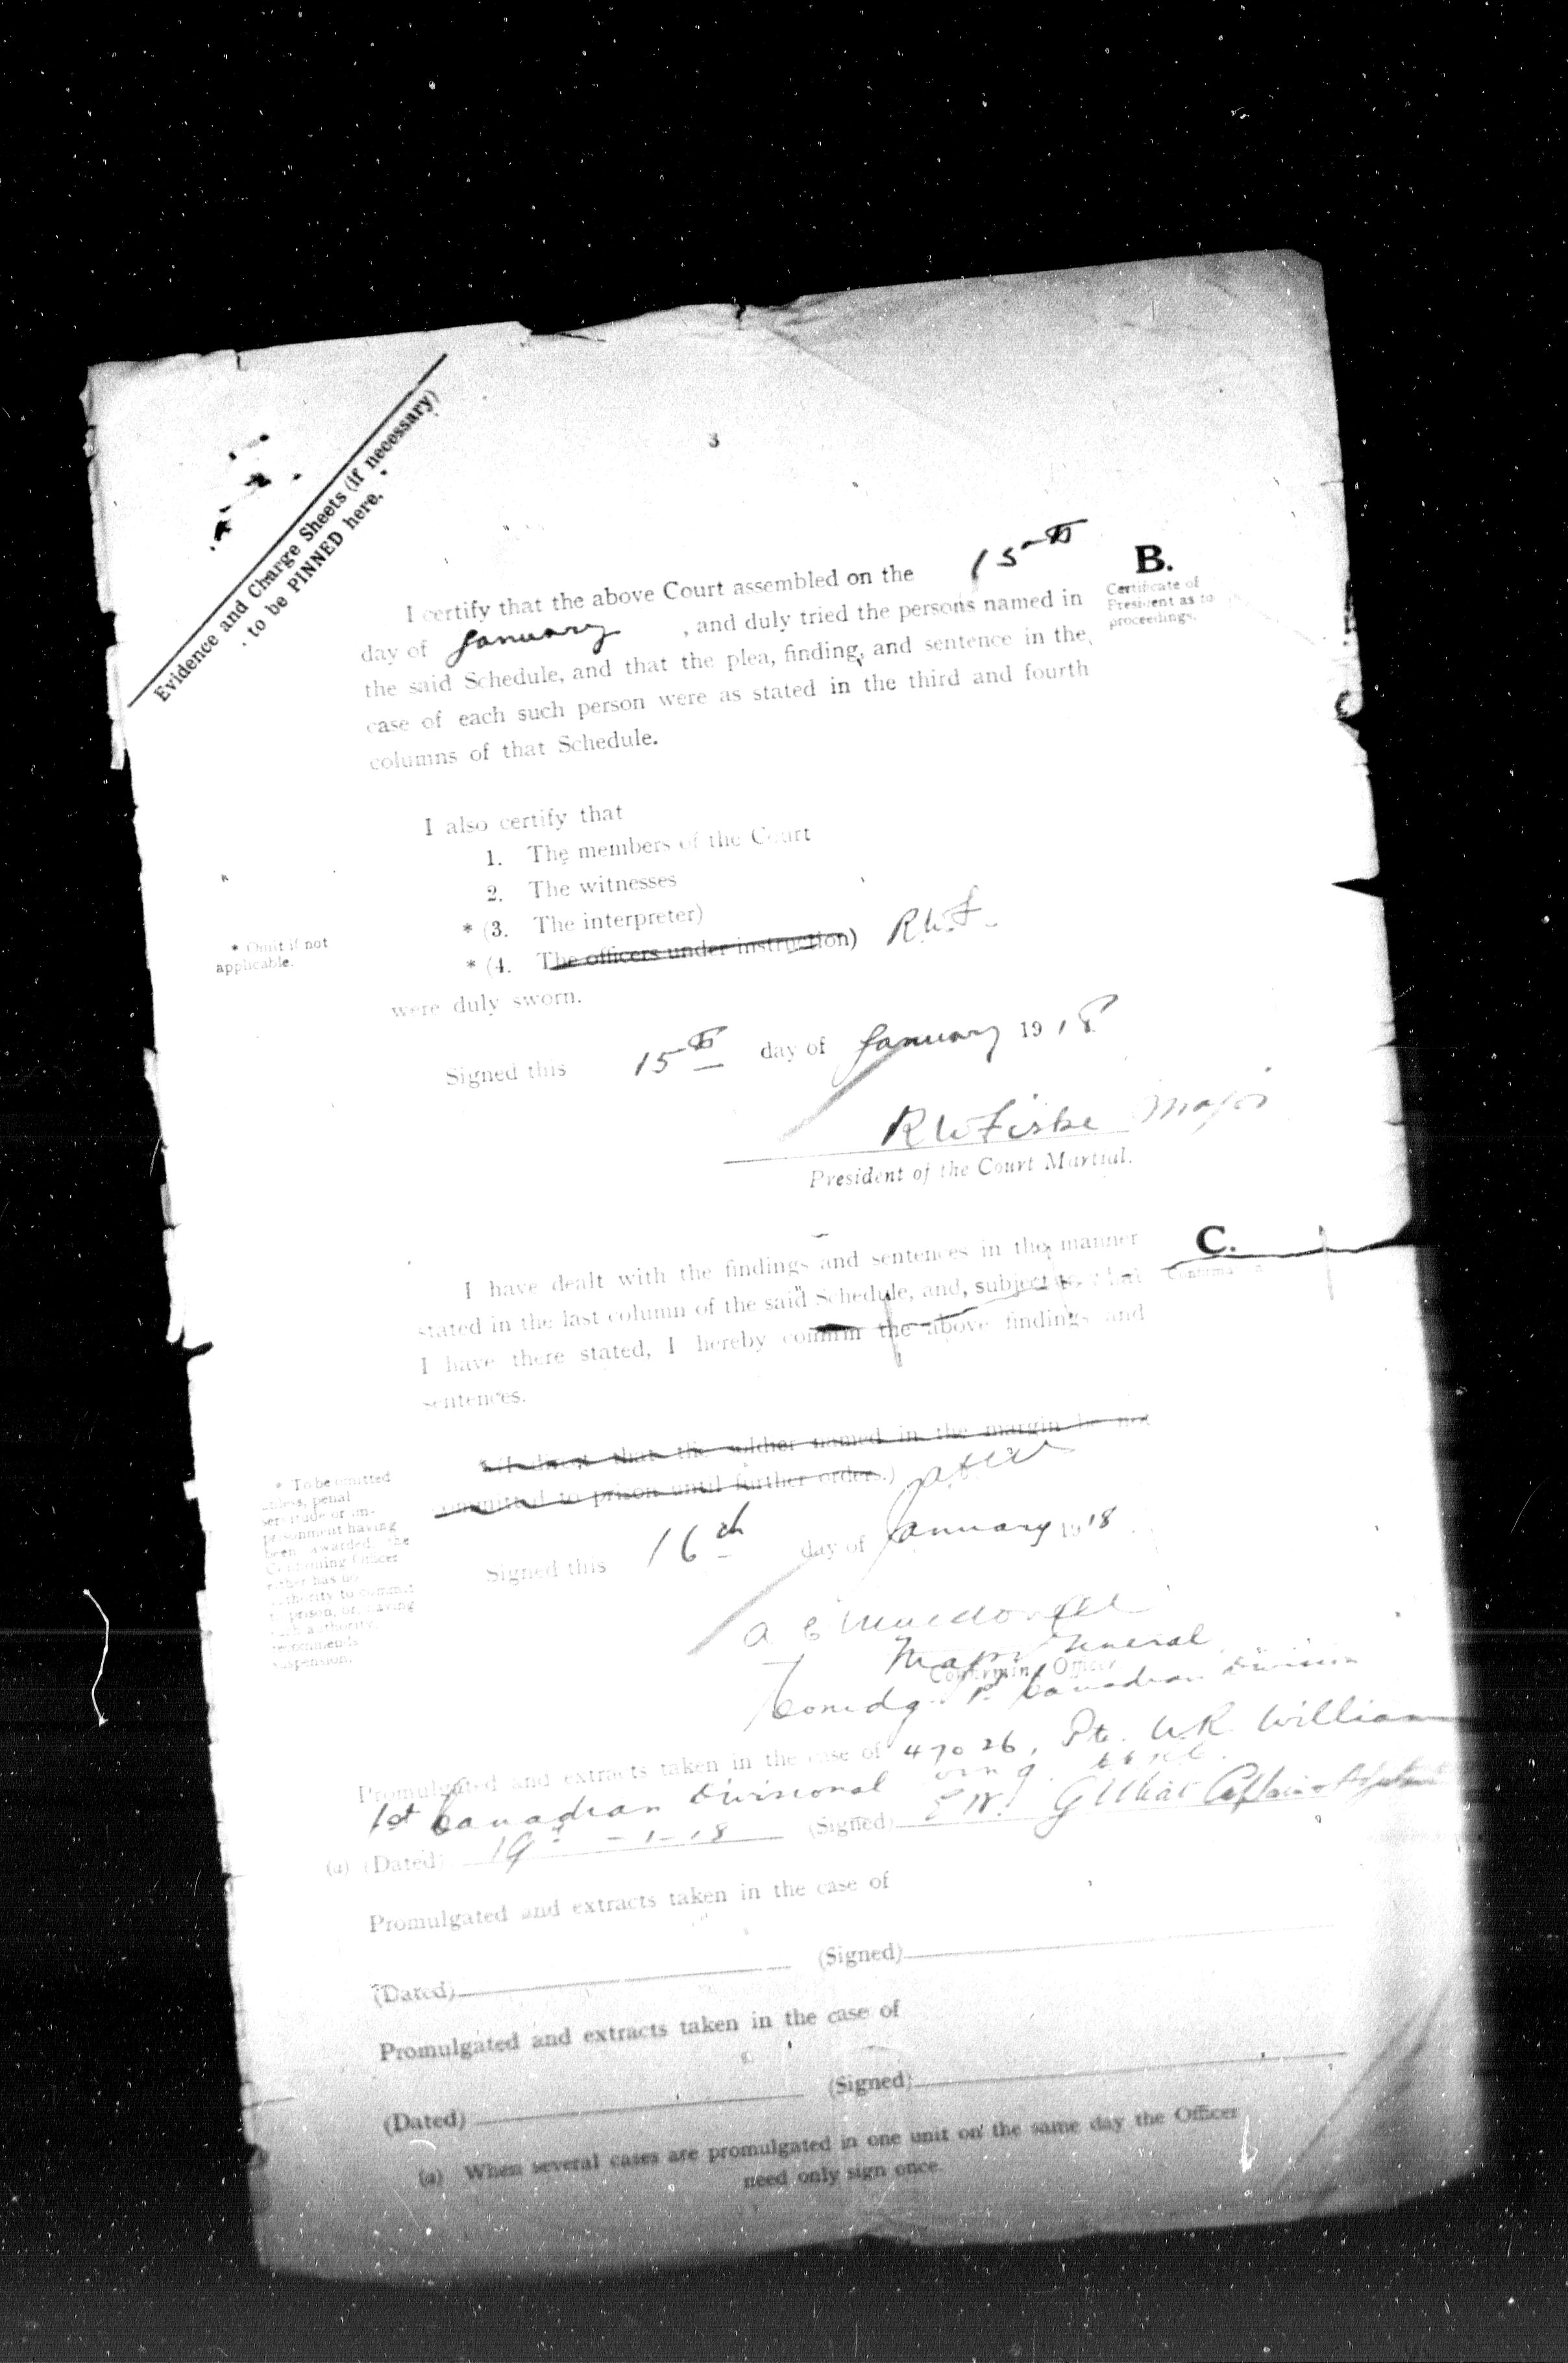 Evidence and Charge Sheets (if necessary)
to be PINNED here.
3
I certify that the above Court assembled on the 15th
day of January , and duly tried the persons named in
the said Schedule, and that the plea, finding, and sentence in the
case of each such person were as stated in the third and fourth
columns of that Schedule.
B.
Certificate of
President as to
proceedings.
I also certify that
1. The members of the Court
2. The witnesses
* (3. The interpreter)
* (4. The officers under instruction) R.W.F.
were duly sworn.
* Omit if not
applicable.
Signed this 15th day of January 1918
R W Fiske Major
President of the Court Martial.
C.
Confirmation
I have dealt with the findings and sentences in the manner
stated in the last column of the said Schedule, and, subject to what
I have there stated, I hereby confirm the above findings and
sentences.
(I direct that the soldier named in the margin be not
committed to prison until further orders.)
* To be omitted
unless, penal
servitude or im-
prisonment having
been awarded, the
Confirming Officer
either has no
authority to commit
to prison, or, having
such authority,
recommends
suspension.
Signed this 16th day of January 1918
A C Macdonell
Major General
Confirming Officer
Comdg. 1st Canadian Division
Promulgated and extracts taken in the case of 47026, Pte. W.R. William
1st Canadian Divisional
(a) (Dated) 19 -1-18 (Signed)
Promulgated and extracts taken in the case of
(Dated) (Signed)
Promulgated and extracts taken in the case of
(Dated) (Signed)
(a) When several cases are promulgated in one unit on the same day the Officer
need only sign once.